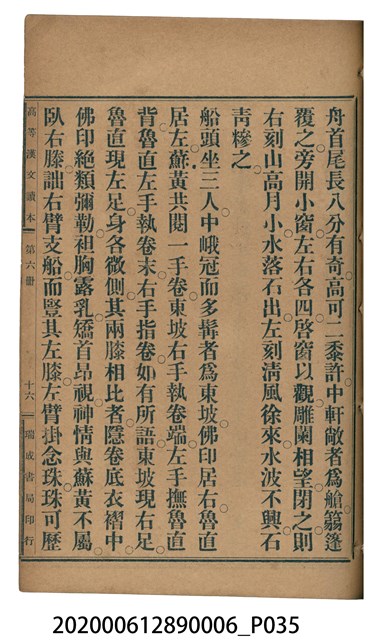 舟首尾長八分有奇高可二黍許中軒敞者爲艙篛篷
覆之旁開小窗左右各四啓窗以觀雕闌相望閉之則
右刻山高月小水落石出左刻清風徐來水波不興石
靑糝之
船頭坐三人中峨冠而多髯者爲東坡佛印居右魯直
居左蘇黃共閱一手卷東坡右手執卷端左手撫魯直
背魯直左手執卷末右手指卷如有所語東坡現右足
魯直現左足身各微側其兩膝相比者隱卷底衣褶中
佛印絶類彌勒袒胸露乳矯首昂視神情與蘇黃不屬
臥右膝詘右臂支船而豎其左膝左臂掛念珠珠可歷
高等漢文讀本 第六册 十六 瑞成書局印行
202000612890006_P035